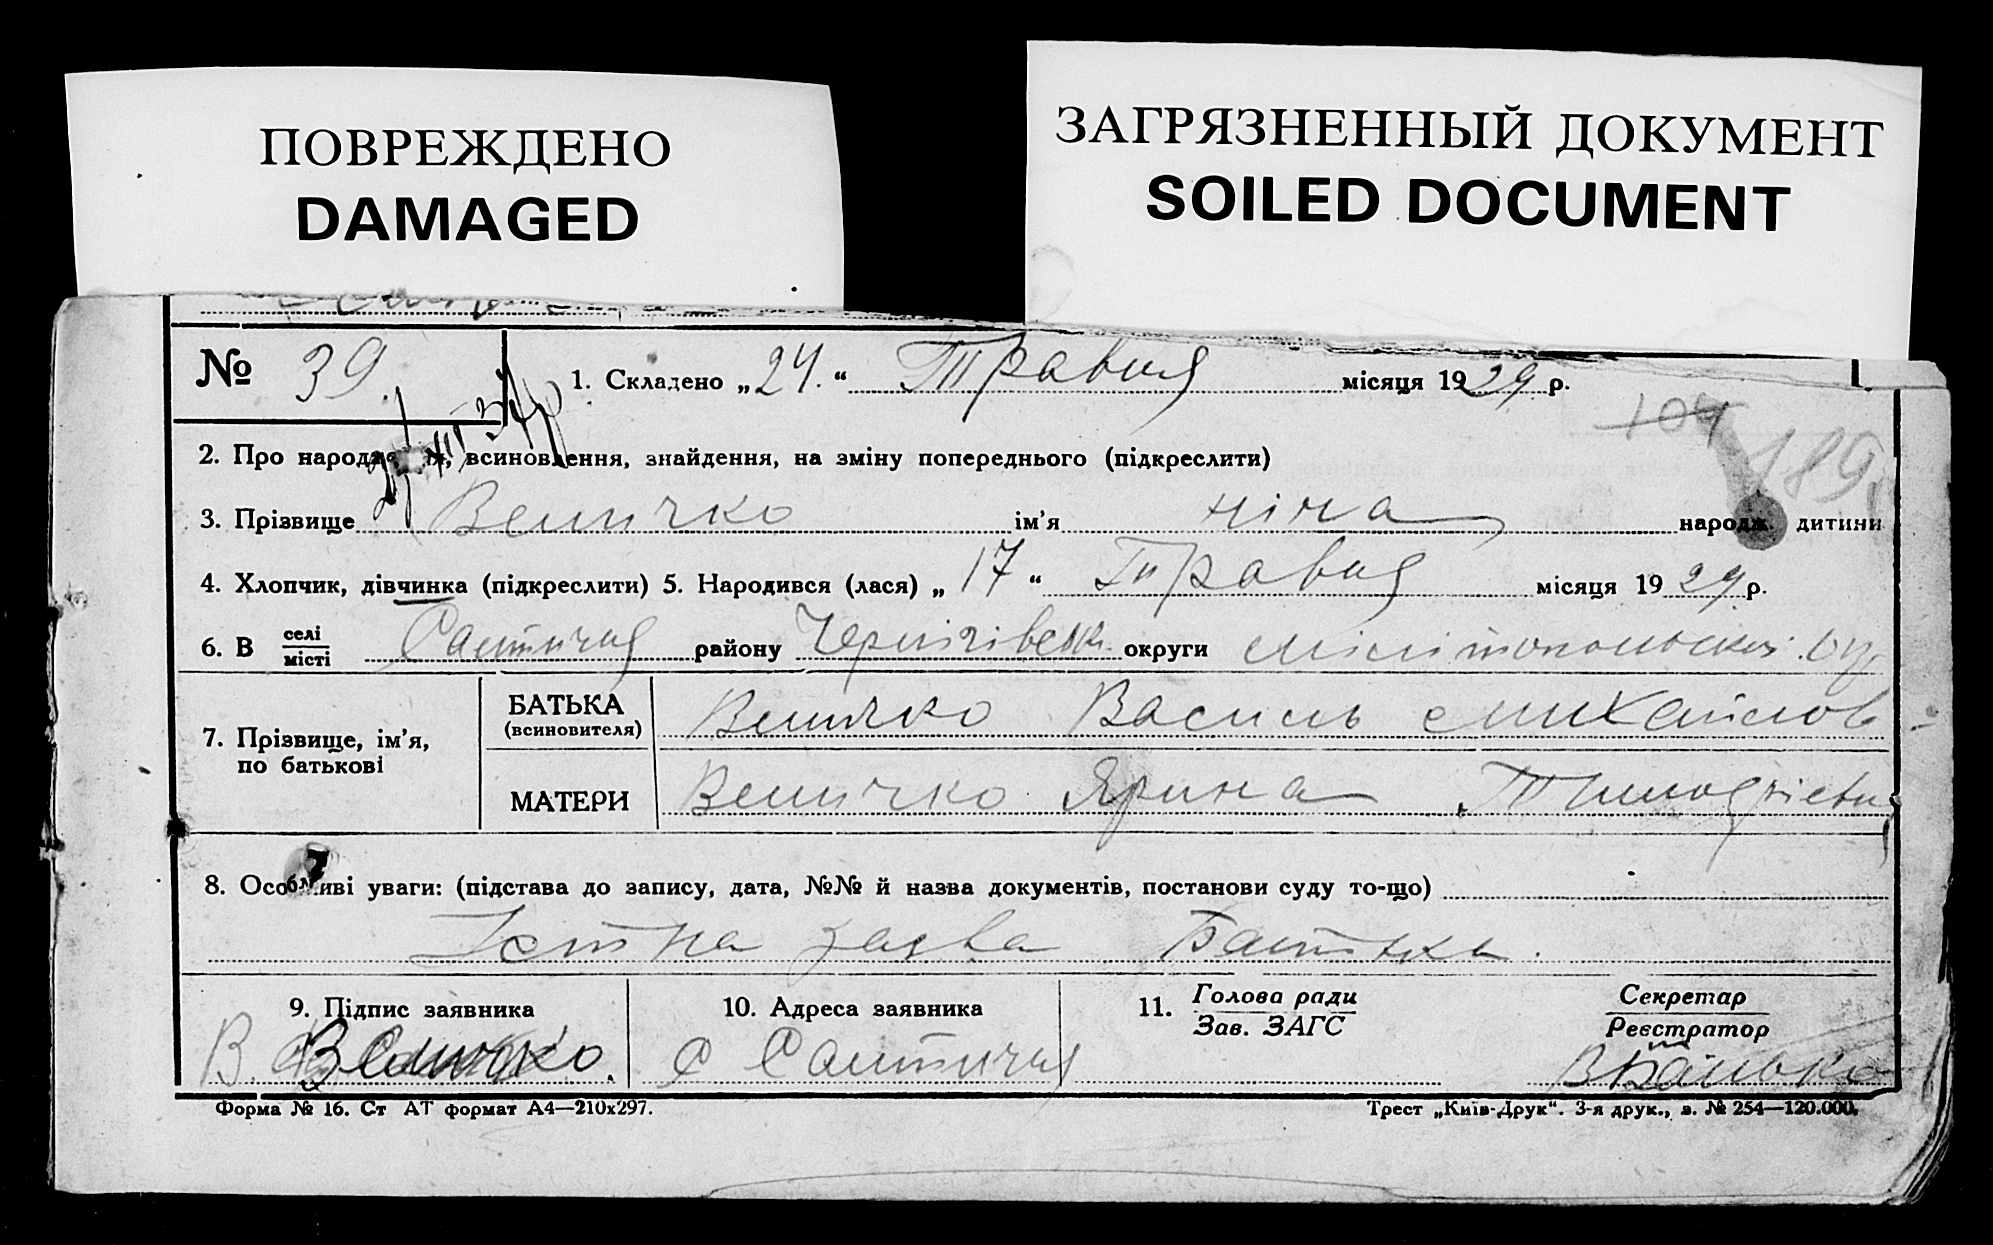 ПОВРЕЖДЕНО
DAMAGED
ЗАГРЯЗНЕННЫЙ ДОКУМЕНТ
SOILED DOCUMENT
№ 39. 1. Складено „24.“ Травня місяця 1929 р.
104
189
2. Про народження, всиновлення, знайдення, на зміну попереднього (підкреслити)
3. Прізвище Величко ім'я Ніна народж. дитини
4. Хлопчик, дівчинка (підкреслити) 5. Народився (лася) „17“ Травня місяця 1929 р.
6. В селі/місті Салтичія району Чернігівськ. округи Мелітопольской ок
7. Прізвище, ім'я, по батькові
БАТЬКА (всиновителя) Величко Василь Михайлов
МАТЕРИ Величко Ярина
8. Особливі уваги: (підстава до запису, дата, №№ й назва документів, постанови суду то-що)
Істна заява Батька.
9. Підпис заявника 10. Адреса заявника 11. Голова ради/Зав. ЗАГС Секретар/Реєстратор
В. Величко. с Салтичія
Форма № 16. Ст АТ формат А4—210x297. Трест „Київ-Друк“. 3-я друк., з. № 254—120.000.